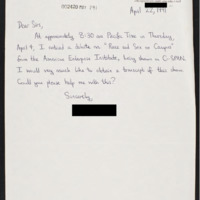 April 22, 1991
Dear Sir,
At approximately 8:30 am Pacific Time on Thursday,
April 4, I noticed a debate on "Race and Sex on Campus"
from the American Enterprise Institute, being shown on C-SPAN.
I would very much like to obtain a transcript of this show.
Could you please help me with this?
Sincerely,